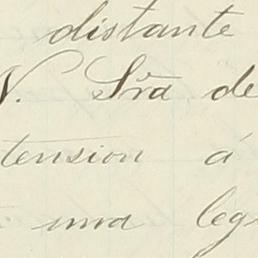 distante
N. Sra de
tension á
una leg